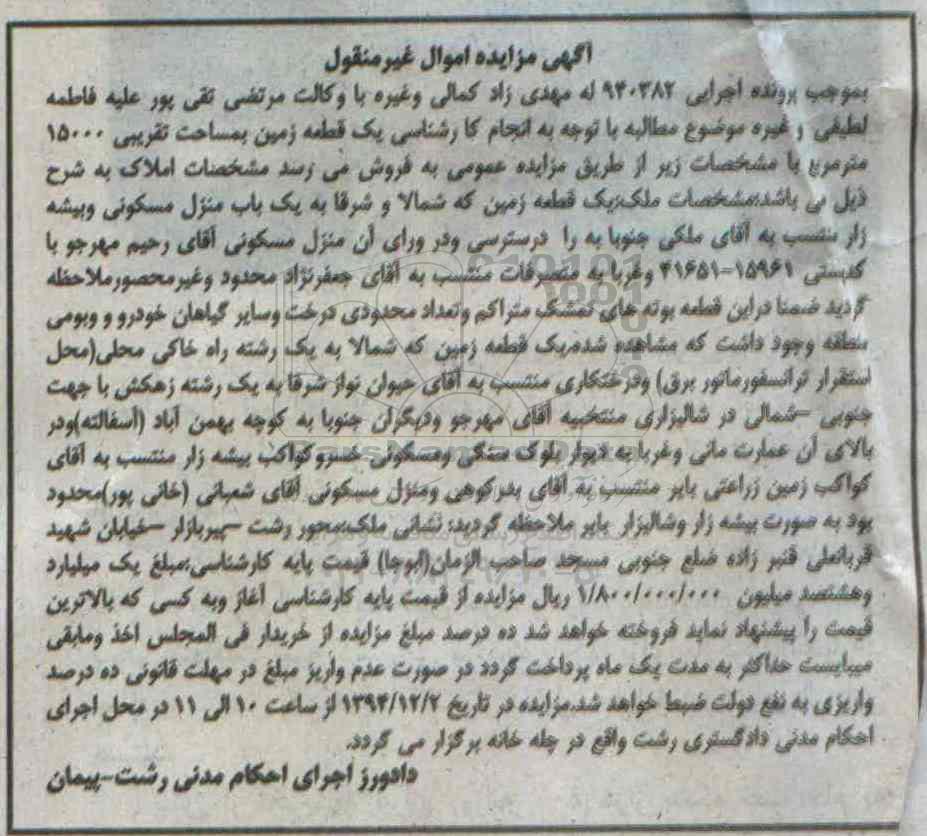 آگهی مزایده اموال غیرمنقول
بموجب پرونده اجرایی ۹۴۰۳۸۲ له مهدی زاد کمالی وغیره با وکالت مرتضی تقی پور علیه فاطمه
لطیفی و غیره موضوع مطالبه با توجه به انجام کارشناسی یک قطعه زمین بمساحت تقریبی ۱۵۰۰۰
مترمربع با مشخصات زیر از طریق مزایده عمومی به فروش می رسد مشخصات املاک به شرح
ذیل می باشد:مشخصات ملک:یک قطعه زمین که شمالا و شرقا به یک باب منزل مسکونی وبیشه
زار منتسب به آقای ملکی جنوبا به را درسترسی ودر ورای آن منزل مسکونی آقای رحیم مهرجو با
کدپستی ۱۵۹۶۱-۴۱۶۵۱ وغربا به متصرفات منتسب به آقای جعفرنژاد محدود وغیرمحصورملاحظه
گردید ضمنا دراین قطعه بوته های تمشک متراکم وتعداد محدودی درخت وسایر گیاهان خودرو و وبومی
منطقه وجود داشت که مشاهده شده.یک قطعه زمین که شمالا به یک رشته راه خاکی محلی(محل
استقرار ترانسفورماتور برق) ودرختکاری منتسب به آقای حیوان نواز شرقا به یک رشته زهکش با جهت
جنوبی -شمالی در شالیزاری منتخبیه آقای مهرجو ودیگران جنوبا به کوچه بهمن آباد (آسفالته)ودر
بالای آن عمارت مانی وغربا به دیوار بلوک سنگی ومسکونی خسروکواکب بیشه زار منتسب به آقای
کواکب زمین زراعتی بایر منتسب به آقای بدرکوهی ومنزل مسکونی آقای شعبانی (خانی پور)محدود
بود به صورت بیشه زار وشالیزار بایر ملاحظه گردید؛ نشانی ملک:محور رشت -پیربازار -خیابان شهید
قربانعلی قنبر زاده ضلع جنوبی مسجد صاحب الزمان(ابوجا) قیمت پایه کارشناسی:مبلغ یک میلیارد
وهشتصد میلیون ۱/۸۰۰/۰۰۰/۰۰۰ ریال مزایده از قیمت پایه کارشناسی آغاز وبه کسی که بالاترین
قیمت را پیشنهاد نماید فروخته خواهد شد ده درصد مبلغ مزایده از خریدار فی المجلس اخذ ومابقی
میبایست حداکثر به مدت یک ماه پرداخت گردد در صورت عدم واریز مبلغ در مهلت قانونی ده درصد
واریزی به نفع دولت ضبط خواهد شد.مزایده در تاریخ ۱۳۹۴/۱۲/۲ از ساعت ۱۰ الی ۱۱ در محل اجرای
احکام مدنی دادگستری رشت واقع در چله خانه برگزار می گردد.
دادورز اجرای احکام مدنی رشت-پیمان